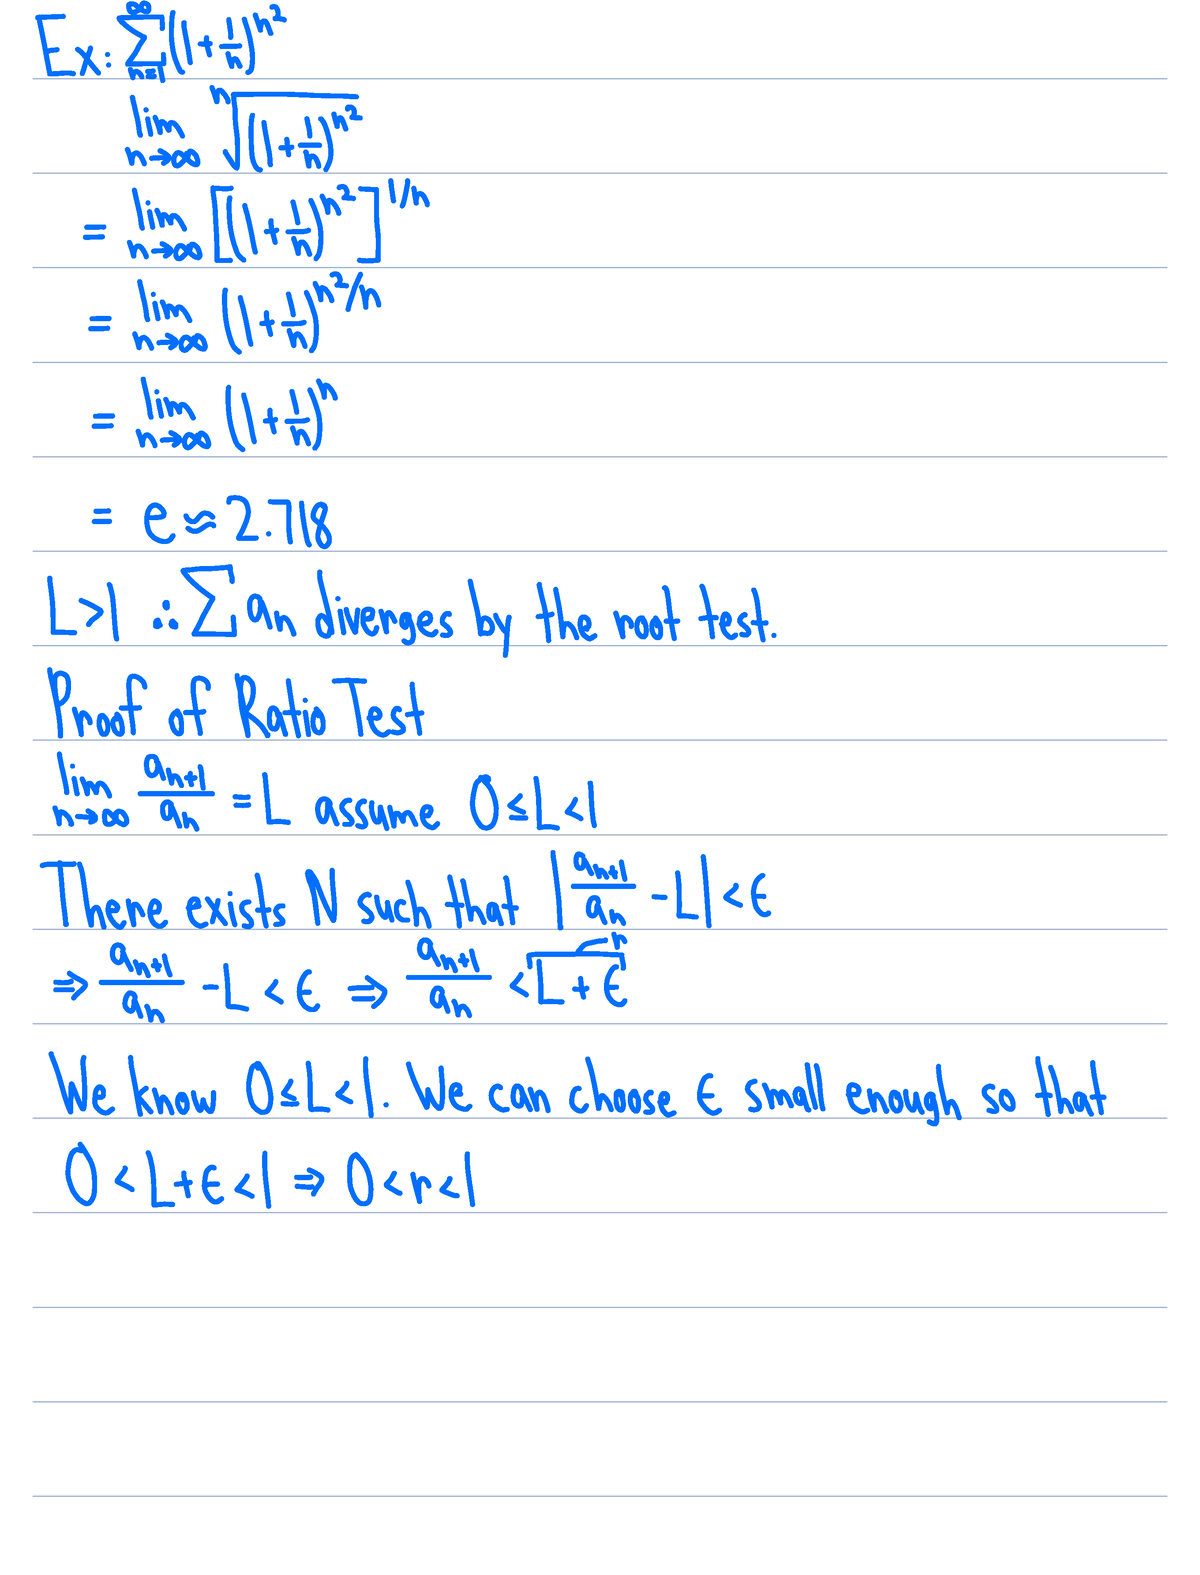 Ex: ∑_{n=1}^{∞} (1+1/n)^{n²}
lim_{n→∞} ⁿ√((1+1/n)^{n²})
= lim_{n→∞} [(1+1/n)^{n²}]^{1/n}
= lim_{n→∞} (1+1/n)^{n²/n}
= lim_{n→∞} (1+1/n)^n
= e ≈ 2.718
L>1 ∴ ∑ an diverges by the root test.
Proof of Ratio Test
lim_{n→∞} a_{n+1}/a_n = L assume 0≤L<1
There exists N such that |a_{n+1}/a_n - L| < ϵ
⇒ a_{n+1}/a_n - L < ϵ ⇒ a_{n+1}/a_n < L + ϵ r
We know 0≤L<1. We can choose ϵ small enough so that
0<L+ϵ<1 ⇒ 0<r<1